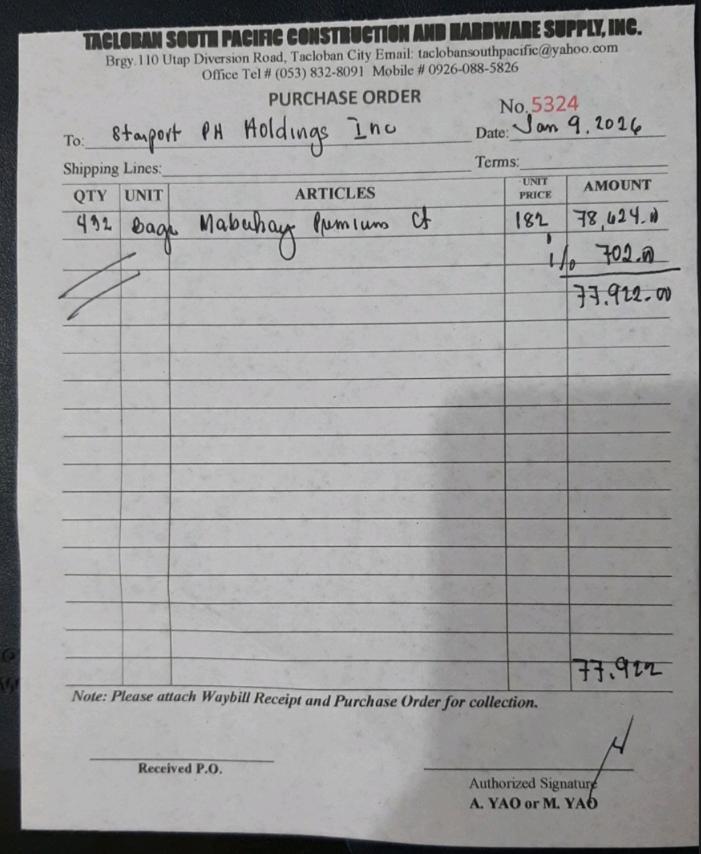 TACLOBAN SOUTH PACIFIC CONSTRUCTION AND HARDWARE SUPPLY, INC.
Brgy.110 Utap Diversion Road, Tacloban City Email: taclobansouthpacific@yahoo.com
Office Tel # (053) 832-8091 Mobile # 0926-088-5826
PURCHASE ORDER
No. 5324
To: Starport PH Holdings Inc Date: Jan 9, 2026
Shipping Lines: Terms:
QTY UNIT ARTICLES UNIT PRICE AMOUNT
432 bags Mabuhay Premium Ct 182 78,624.00
1% 702.00
77,922.00
77,922
Note: Please attach Waybill Receipt and Purchase Order for collection.
Received P.O.
Authorized Signature
A. YAO or M. YAO